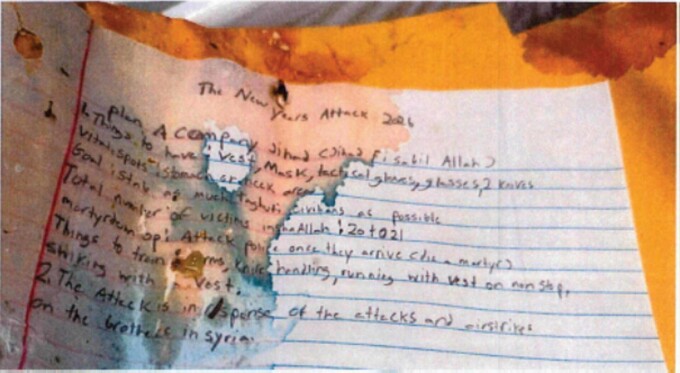 The New Years Attack 2026
plan A Company Jihad (Jihad Fi sabil Allah)
1. Things to have: vest, Mask, tactical gloves, glasses, 2 knives
vital spots: stomach neck area
Goal: stab as much civilians as possible
Total number of victims inshaAllah: 20 to 21
martyrdom op: Attack police once they arrive (die a martyr)
Things to train: arms, knife handling, running with vest on non stop,
striking with vest.
2. The Attack is in of the attacks and airstrikes
on the brothers in Syria.